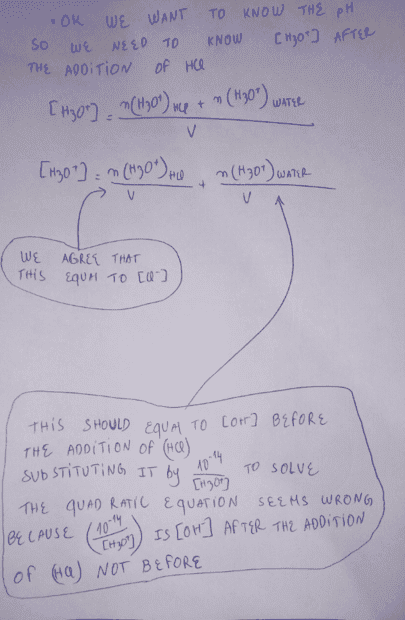 • OK WE WANT TO KNOW THE pH
SO WE NEED TO KNOW [H3O+] AFTER
THE ADDITION OF HCl
[H3O+] = n(H3O+) HCl + n(H3O+) WATER
V
[H3O+] = n(H3O+) HCl + n(H3O+) WATER
V V
WE AGREE THAT
THIS EQUAL TO [Cl-]
THIS SHOULD EQUAL TO [OH-] BEFORE
THE ADDITION OF (HCl)
SUBSTITUTING IT By 10^-14 / [H3O+] TO SOLVE
THE QUADRATIC EQUATION SEEMS WRONG
BECAUSE (10^-14 / [H3O+]) IS [OH-] AFTER THE ADDITION
OF (HCl) NOT BEFORE